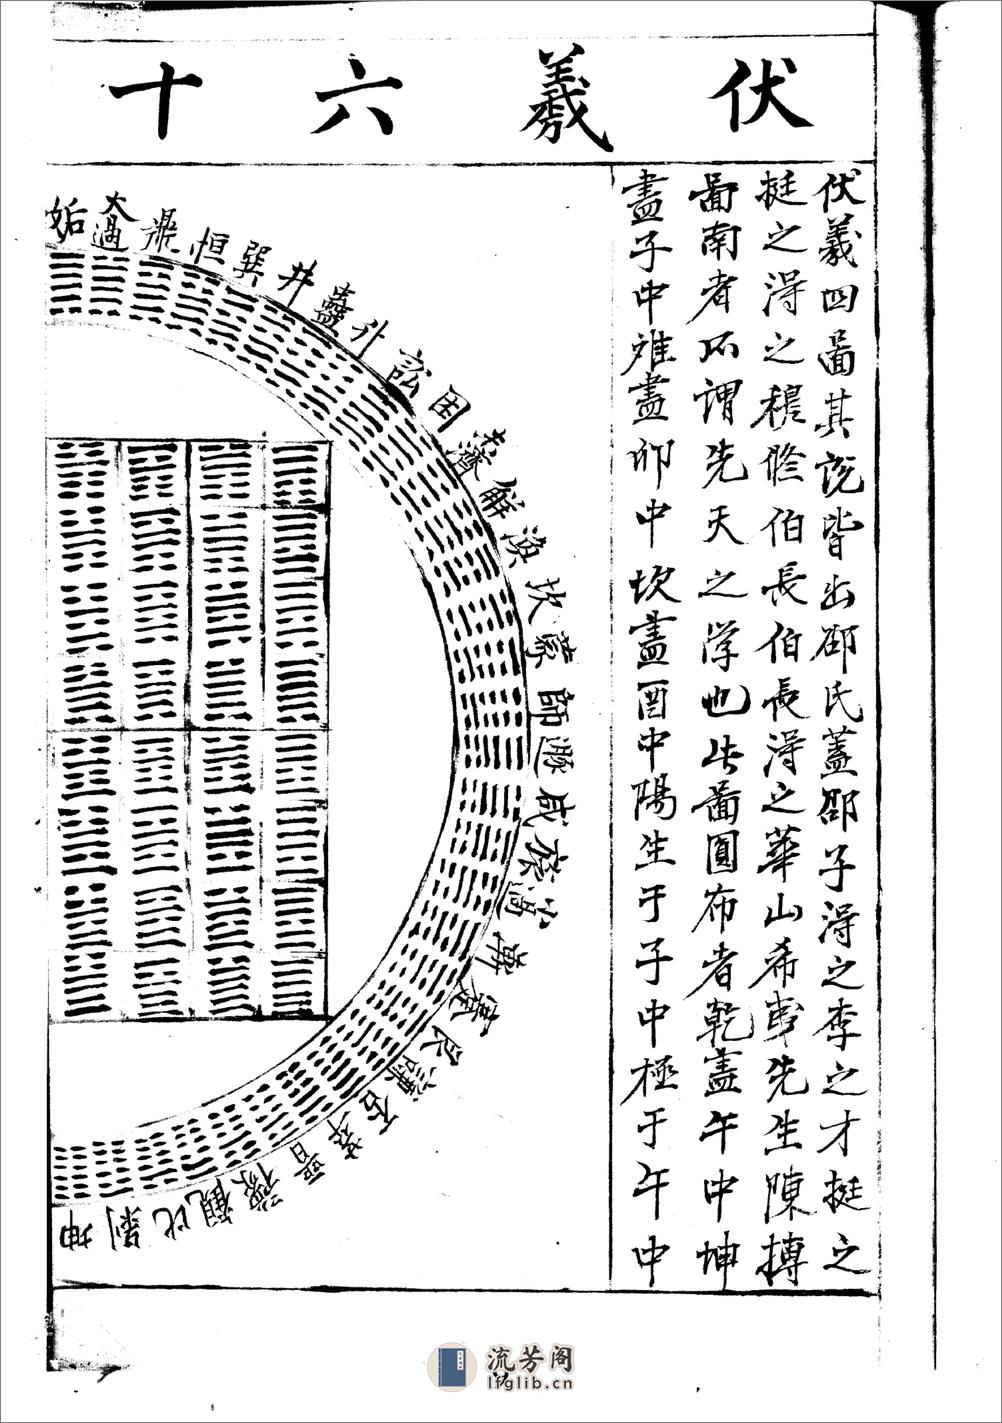 伏羲六十
伏羲四啚其說皆出邵氏蓋邵子得之李之才挺之
挺之得之穆脩伯長伯長得之華山希夷先生陳摶
啚南者所謂先天之学也此啚圓布者乾盡午中坤
盡子中離盡卯中坎盡酉中陽生于子中極于午中
姤
大過
鼎
恒
巽
井
蠱
升
訟
困
未濟
解
渙
坎
蒙
師
遯
咸
旅
小過
漸
蹇
艮
謙
否
萃
晋
豫
觀
比
剝
坤
流芳阁
lfglib.cn